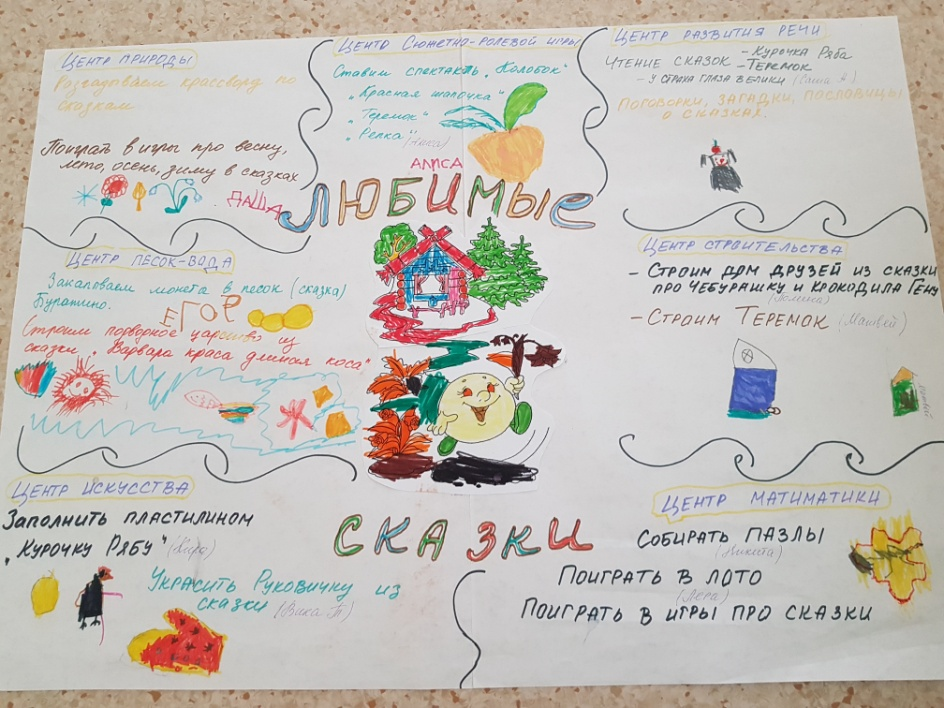 Центр природы
Разгадываем кроссворд по
сказкам
Поиграть в игры про весну,
лето, осень, зиму в сказках
ДАША
Центр Сюжетно-ролевой игры
Ставим спектакль „Колобок"
„Красная шапочка"
„Теремок"
„Репка"
АЛИСА
Центр развития речи
Чтение сказок - Курочка Ряба
- Теремок
- У страха глаза велики (Саша В)
Поговорки, загадки, пословицы
о сказках.
ЛЮБИМЫЕ
Центр песок-вода
Закапываем монета в песок (сказка)
Буратино.
ЕГОР
Строим подводное царство из
сказки „Варвара краса длиная коса"
Центр строительства
- Строим дом друзей из сказки
про Чебурашку и крокодила Гену
(Полина)
- Строим Теремок (Матвей)
Центр искусства
Заполнить пластилином
„Курочку Рябу" (Кира)
Украсить Руковичку из
сказки (Вика Т)
СКАЗКИ
Центр матиматики
Собирать пазлы
(Никита)
Поиграть в лото
(Лера)
Поиграть в игры про сказки